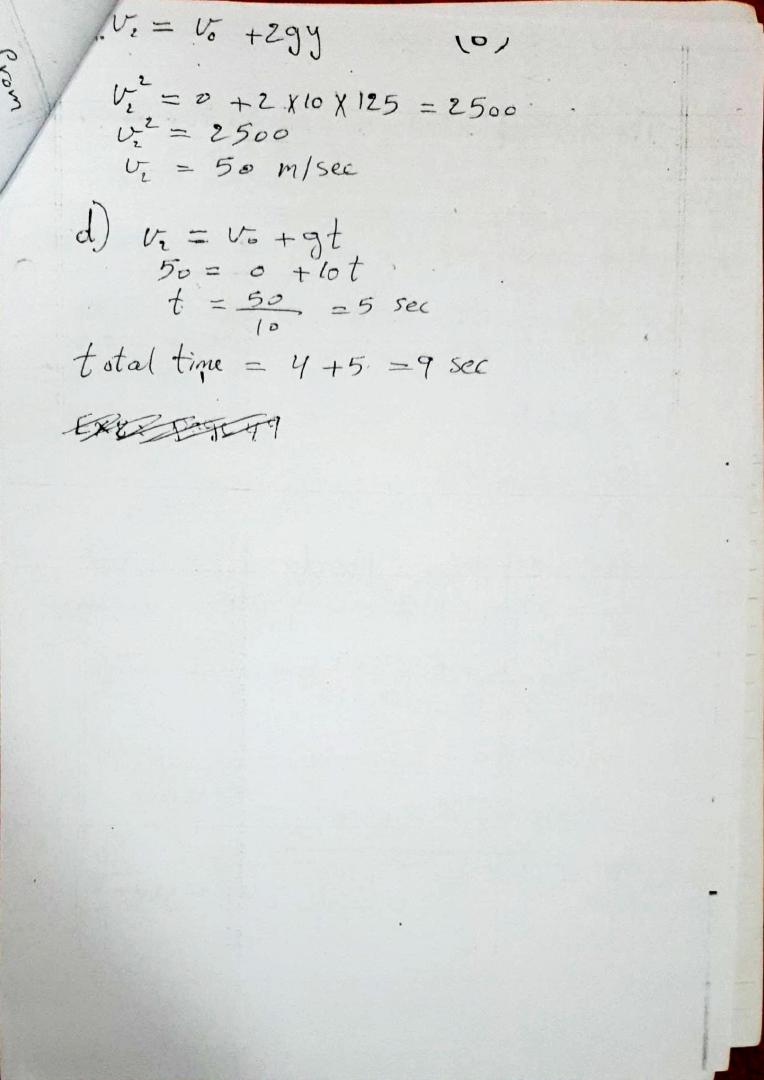 ..v₂ = v₀ + 2gy
(0)
v₂² = 0 + 2 X 10 X 125 = 2500
v₂² = 2500
v₂ = 50 m/sec
d) v₂ = v₀ + gt
50 = 0 + 10t
t = 50/10 = 5 sec
total time = 4 + 5 = 9 sec